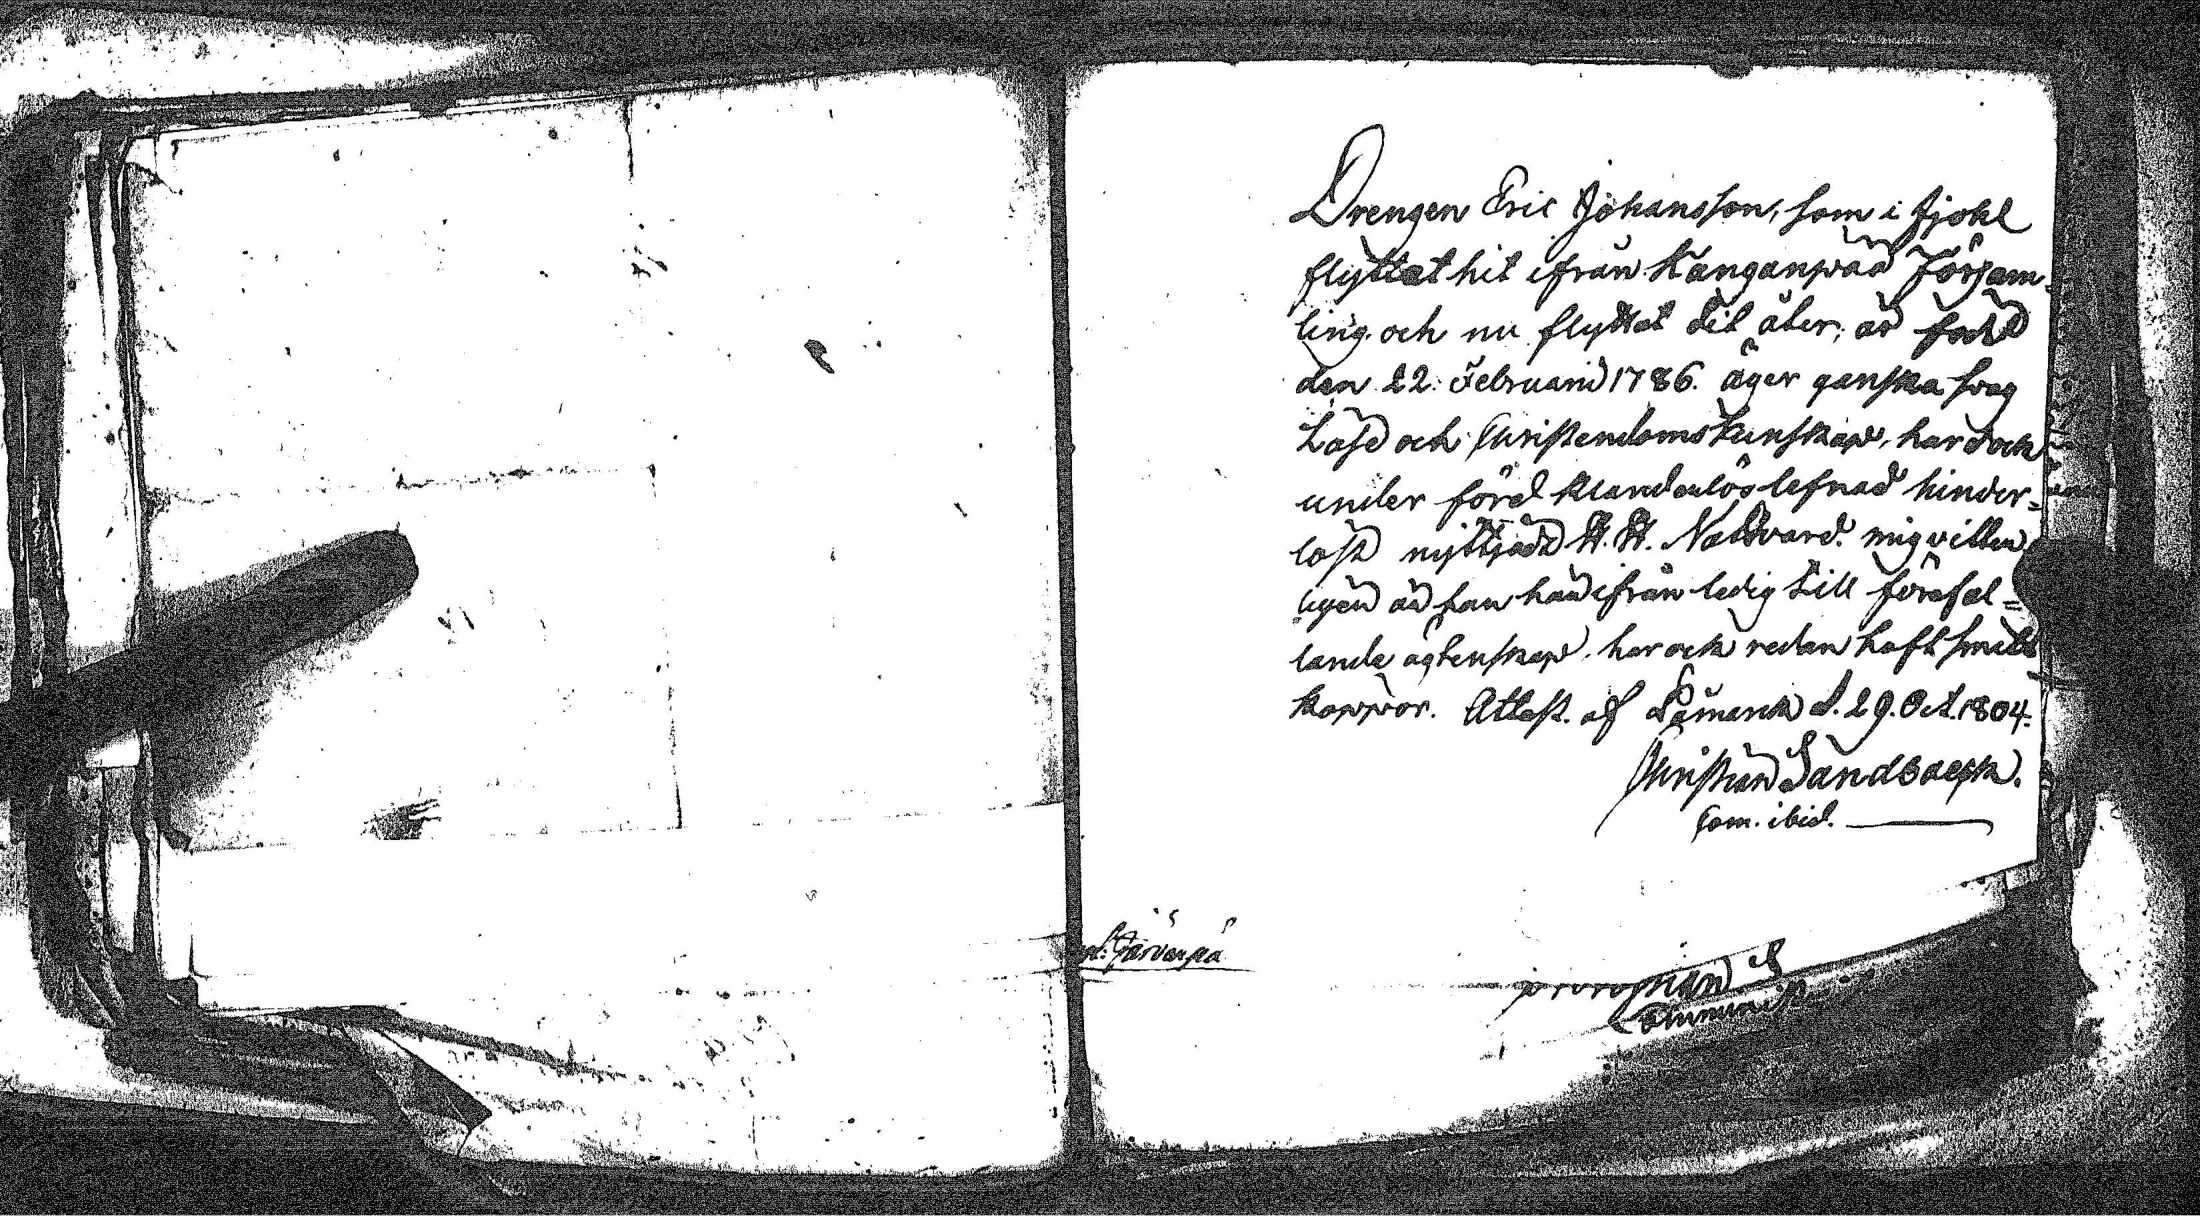 Drengen Eric Johansson, som i fjohl
flyttat hit ifrån Kanganpää Församˍ
ling. och nu flyttat dit åter, är född
den 22. Februarii 1786. äger ganska svag
Läse och Christendoms kunskap, har dock
under förd klanderlös lefnad hinder=
löst nyttjadt H. H. Nattvard. mig vitter
ligen är han härifrån ledig till förefal=
lande ägtenskap. har ock redan haft smitt
koppor. Attest. af Lämarck d. 29. Oct. 1804.
Christian Sandbaeck.
Com. ibid.
Järvenpä